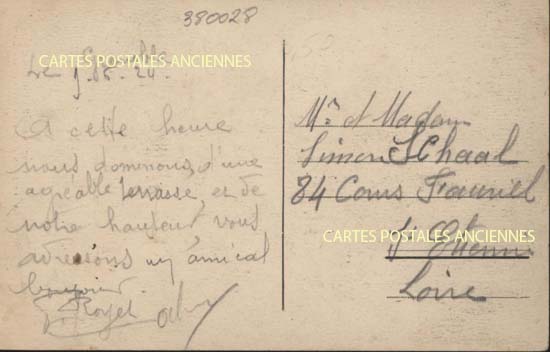 380028
CARTES POSTALES ANCIENNES
Le
A cette heure
nous dominons d'une
agréable terrasse, et de
notre hauteur vous
adressons un amical
bonjour
Royet
Mr et Madame
Simon Schaal
84 Cours Fauriel
CARTES POSTALES ANCIENNES
St Etienne
Loire